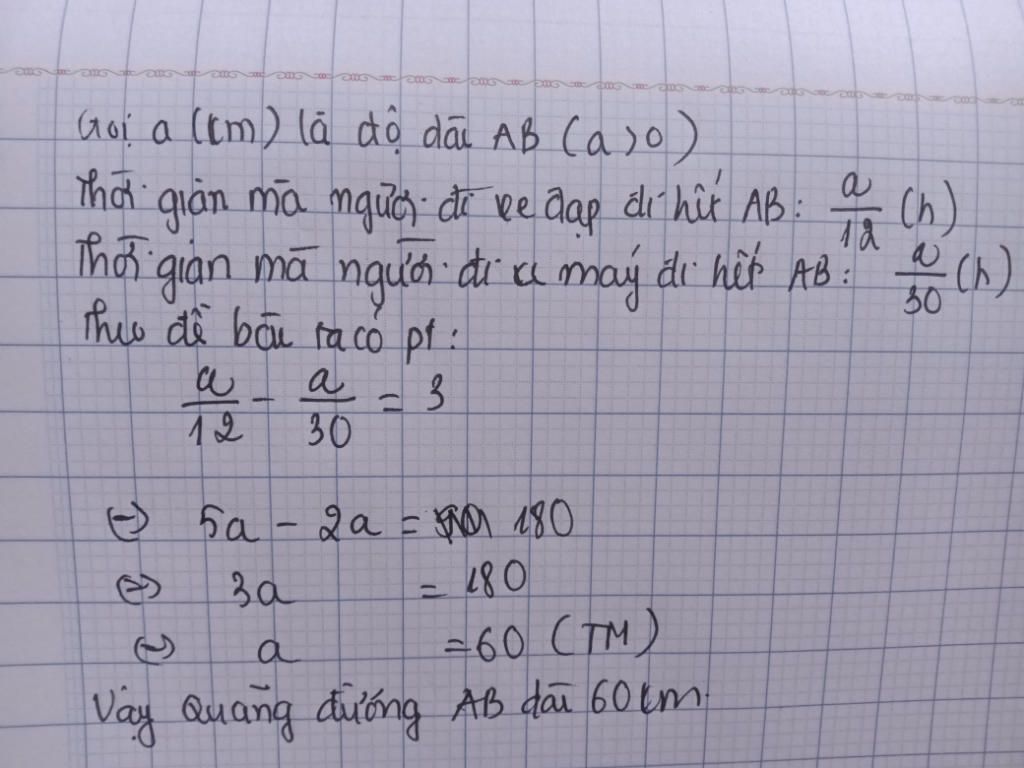 Gọi a (km) là độ dài AB (a > 0)
Thời gian mà người đi xe đạp đi hết AB: a/12 (h)
Thời gian mà người đi xe máy đi hết AB: a/30 (h)
Theo đề bài ta có pt:
a/12 - a/30 = 3
<=> 5a - 2a = 180
<=> 3a = 180
<=> a = 60 (TM)
Vậy quãng đường AB dài 60km